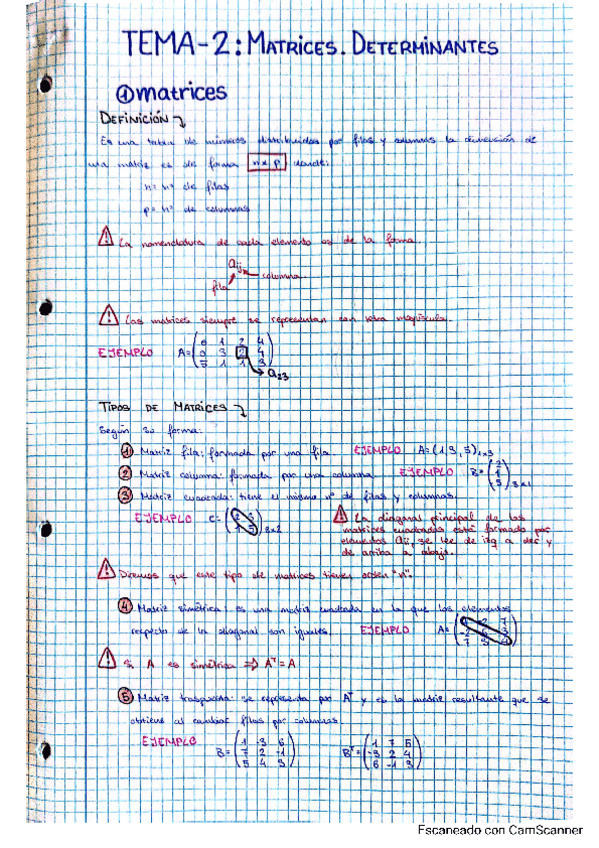 TEMA-2: MATRICES. DETERMINANTES
① matrices
DEFINICIÓN
Es una tabla de números distribuidos por filas y columnas la dimensión de
una matriz es de forma n x p donde:
n = nº de filas
p = nº de columnas
⚠ La nomenclatura de cada elemento es de la forma.
aij
fila columna
⚠ Las matrices siempre se representan con letra mayúscula.
EJEMPLO A =
0 1 2 4
0 3 2 4
5 1 1 3
a23
TIPOS DE MATRICES
Según su forma:
① Matriz fila: formada por una fila. EJEMPLO A = (1 3, 5) 1x3
② Matriz columna: formada por una columna EJEMPLO B = (2 1 5) 3x1
③ Matriz cuadrada: tiene el mismo nº de filas y columnas.
EJEMPLO C = 2x2
⚠ La diagonal principal de las
matrices cuadradas está formada por
elementos aij, se lee de izq a der y
de arriba a abajo.
⚠ Diremos que este tipo de matrices tienen orden "n".
④ Matriz simétrica: es una matriz cuadrada en la que los elementos
respecto de la diagonal son iguales. EJEMPLO A =
⚠ Si A es simétrica ⇒ Aᵀ = A
⑤ Matriz traspuesta: se representa por Aᵀ y es la matriz resultante que se
obtiene al cambiar filas por columnas.
EJEMPLO B = Bᵀ =
1 -3 6 1 7 5
7 2 -1 -3 2 4
5 4 3 6 -1 3
Escaneado con CamScanner